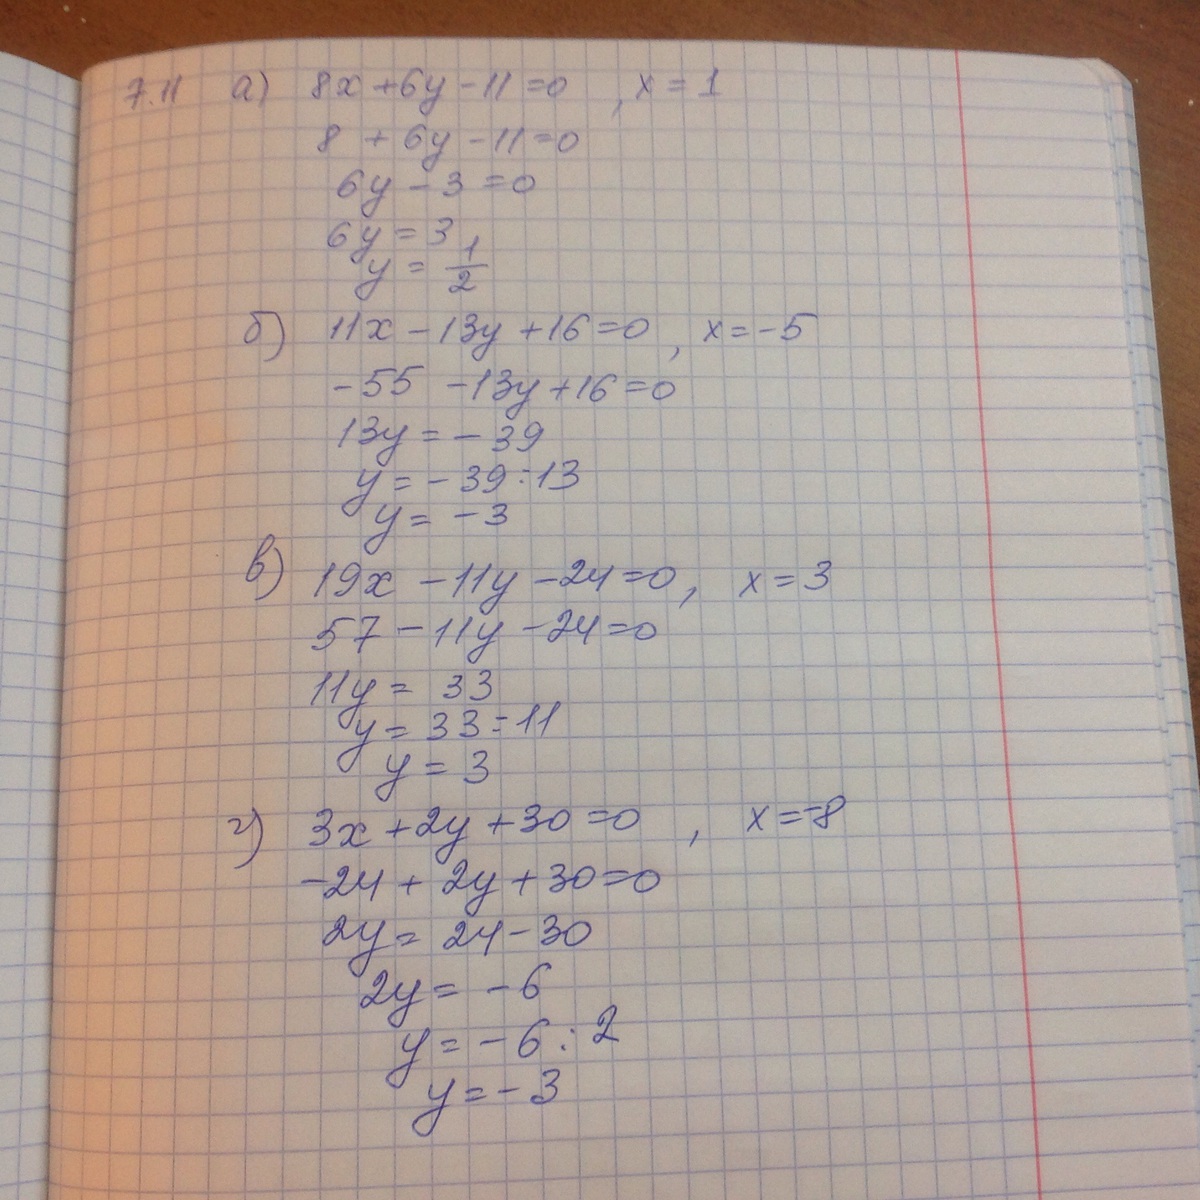 7.11 а) 8x + 6y - 11 = 0 , x = 1
8 + 6y - 11 = 0
6y - 3 = 0
6y = 3
y = 1/2
б) 11x - 13y + 16 = 0 , x = -5
-55 - 13y + 16 = 0
13y = - 39
y = - 39 : 13
y = - 3
в) 19x - 11y - 24 = 0 , x = 3
57 - 11y - 24 = 0
11y = 33
y = 33 : 11
y = 3
г) 3x + 2y + 30 = 0 , x = -8
-24 + 2y + 30 = 0
2y = 24 - 30
2y = - 6
y = - 6 : 2
y = - 3